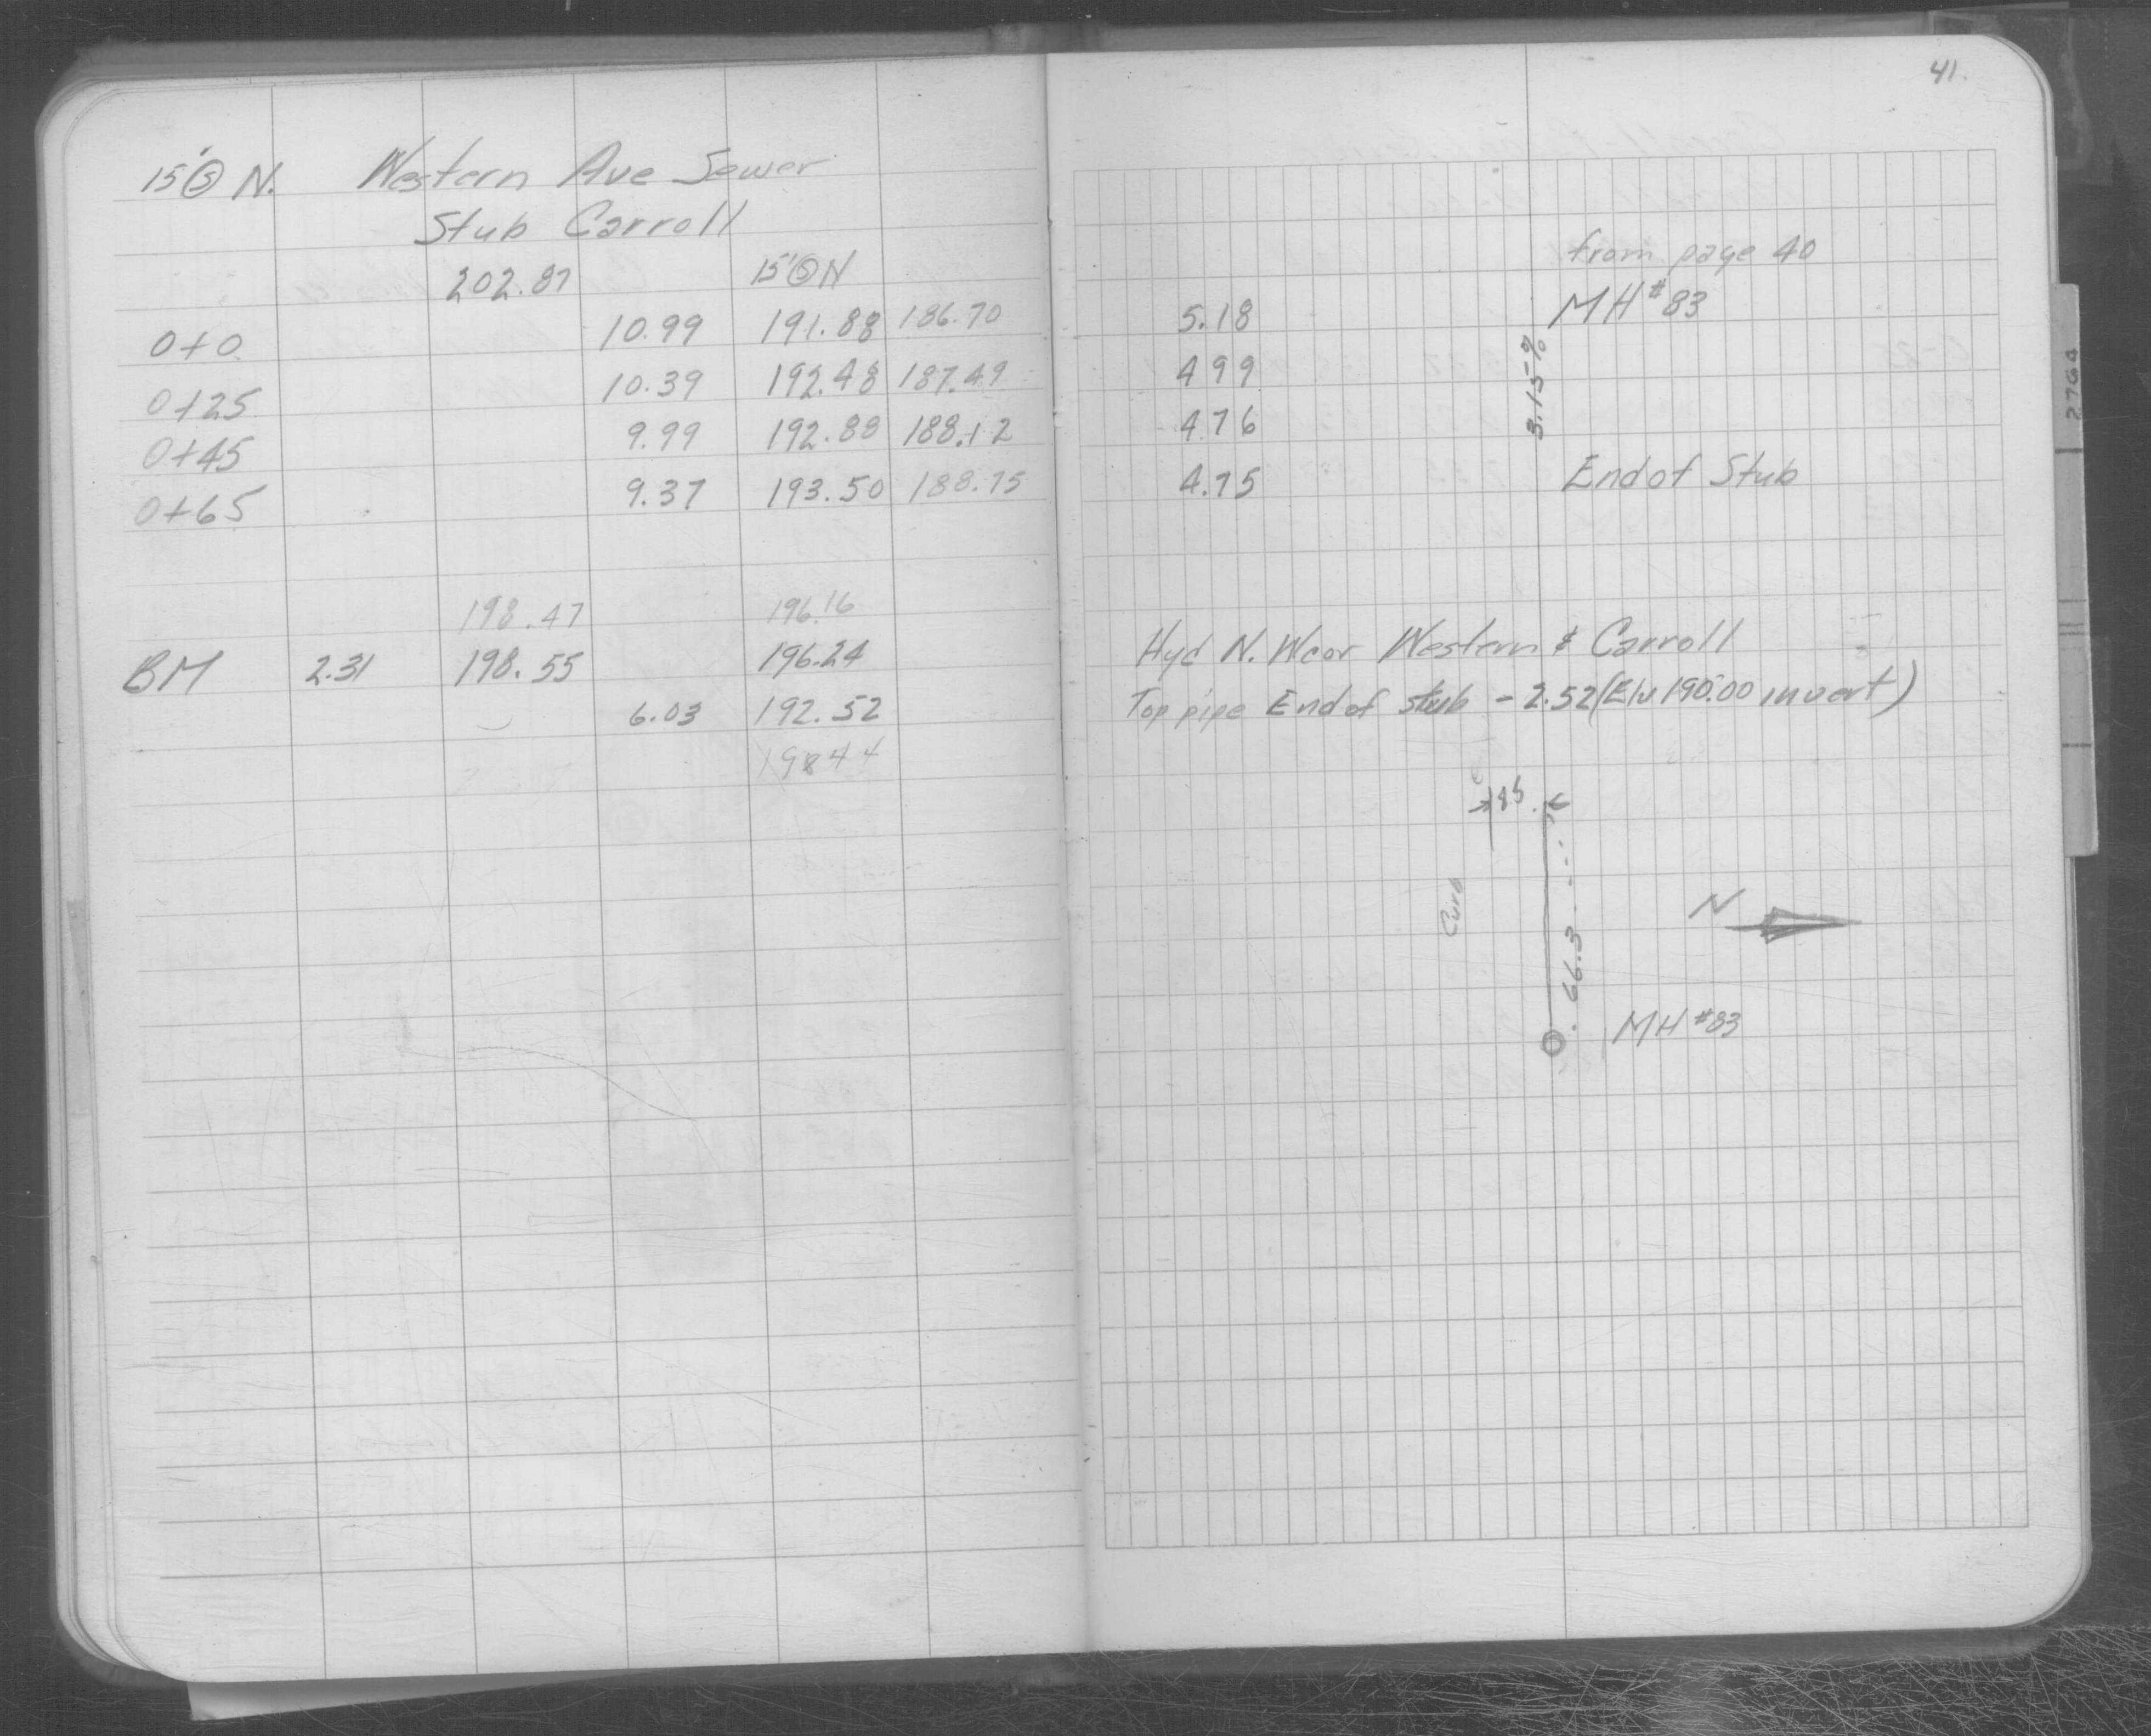 41.
15' Ⓢ N. Western Ave Sewer
Stub Carroll
202.87 15' Ⓢ N
from page 40
0+0 10.99 191.88 186.70 5.18 MH #83
0+25 10.39 192.48 187.49 499
3.15%
0+45 9.99 192.88 188.12 476
0+65 9.37 193.50 188.75 4.75 End of Stub
198.47 196.16
BM 2.31 198.55 196.24 Hyd N. W cor Western & Carroll
6.03 192.52 Top pipe End of stub - 2.52 (Elv 190.00 invert)
19844
Curb
N
66.3
MH #83
2764